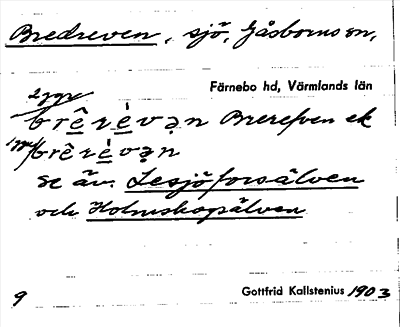 Bredreven, sjö, Gåsborns sn,
Färnebo hd, Värmlands län
2 ggr
brêrèvạn Brerefven ek
brêrèvạn
se äv. Lesjöforsälven
och Holmskogsälven
9
Gottfrid Kallstenius 1903